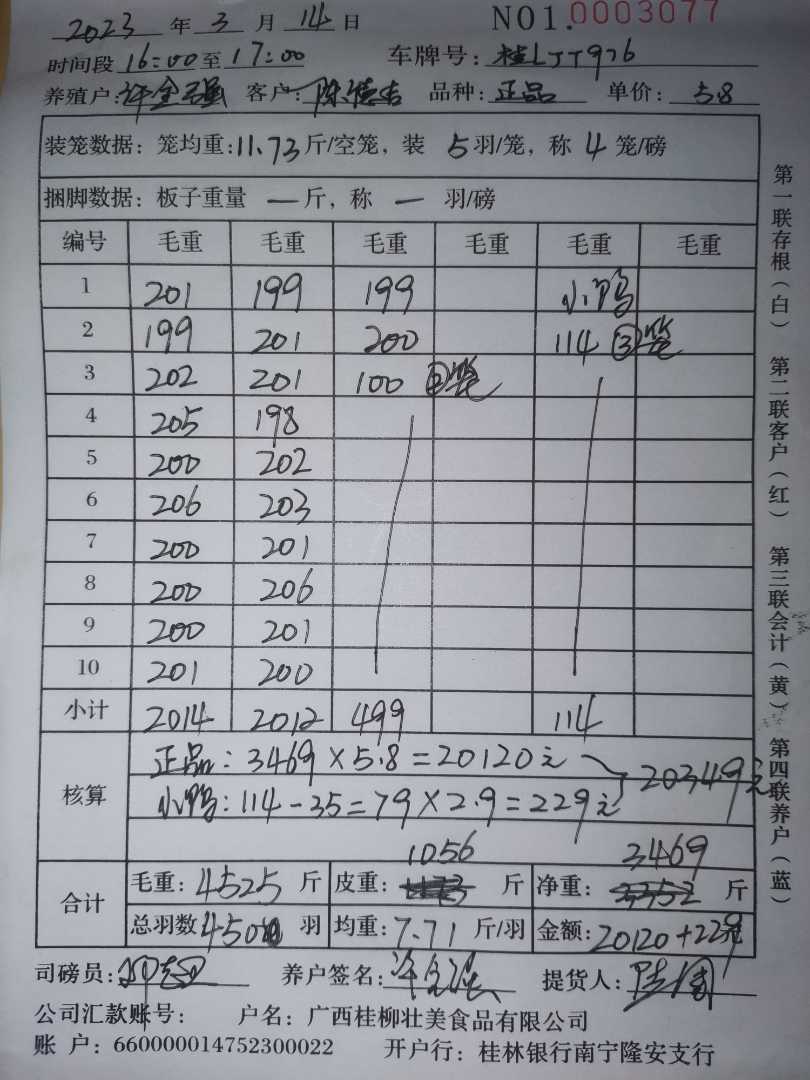 2023 年 3 月 14 日 NO1.0003077
时间段 16:00 至 17:00 车牌号: 桂LJT976
养殖户: 许金强 客户: 陈德吉 品种: 正品 单价: 58
装笼数据: 笼均重: 11.73 斤/空笼, 装 5 羽/笼, 称 4 笼/磅
捆脚数据: 板子重量 — 斤, 称 — 羽/磅
编号 毛重 毛重 毛重 毛重 毛重 毛重
1 201 199 199 小鸭
2 199 201 200 114 ③笼
3 202 201 100 ②笼
4 205 198
5 200 202
6 206 203
7 200 201
8 200 206
9 200 201
10 201 200
小计 2014 2012 499 114
核算
正品: 3469 × 5.8 = 20120元
小鸭: 114 - 35 = 79 × 2.9 = 229元
20349元
1056 3469
合计
毛重: 4525 斤 皮重: 斤 净重: 斤
总羽数 450 羽 均重: 7.71 斤/羽 金额: 20120+229元
司磅员: 养户签名: 许金强 提货人:
公司汇款账号: 户名: 广西桂柳壮美食品有限公司
账 户: 660000014752300022 开户行: 桂林银行南宁隆安支行
第一联存根(白) 第二联客户(红) 第三联会计(黄) 第四联养户(蓝)